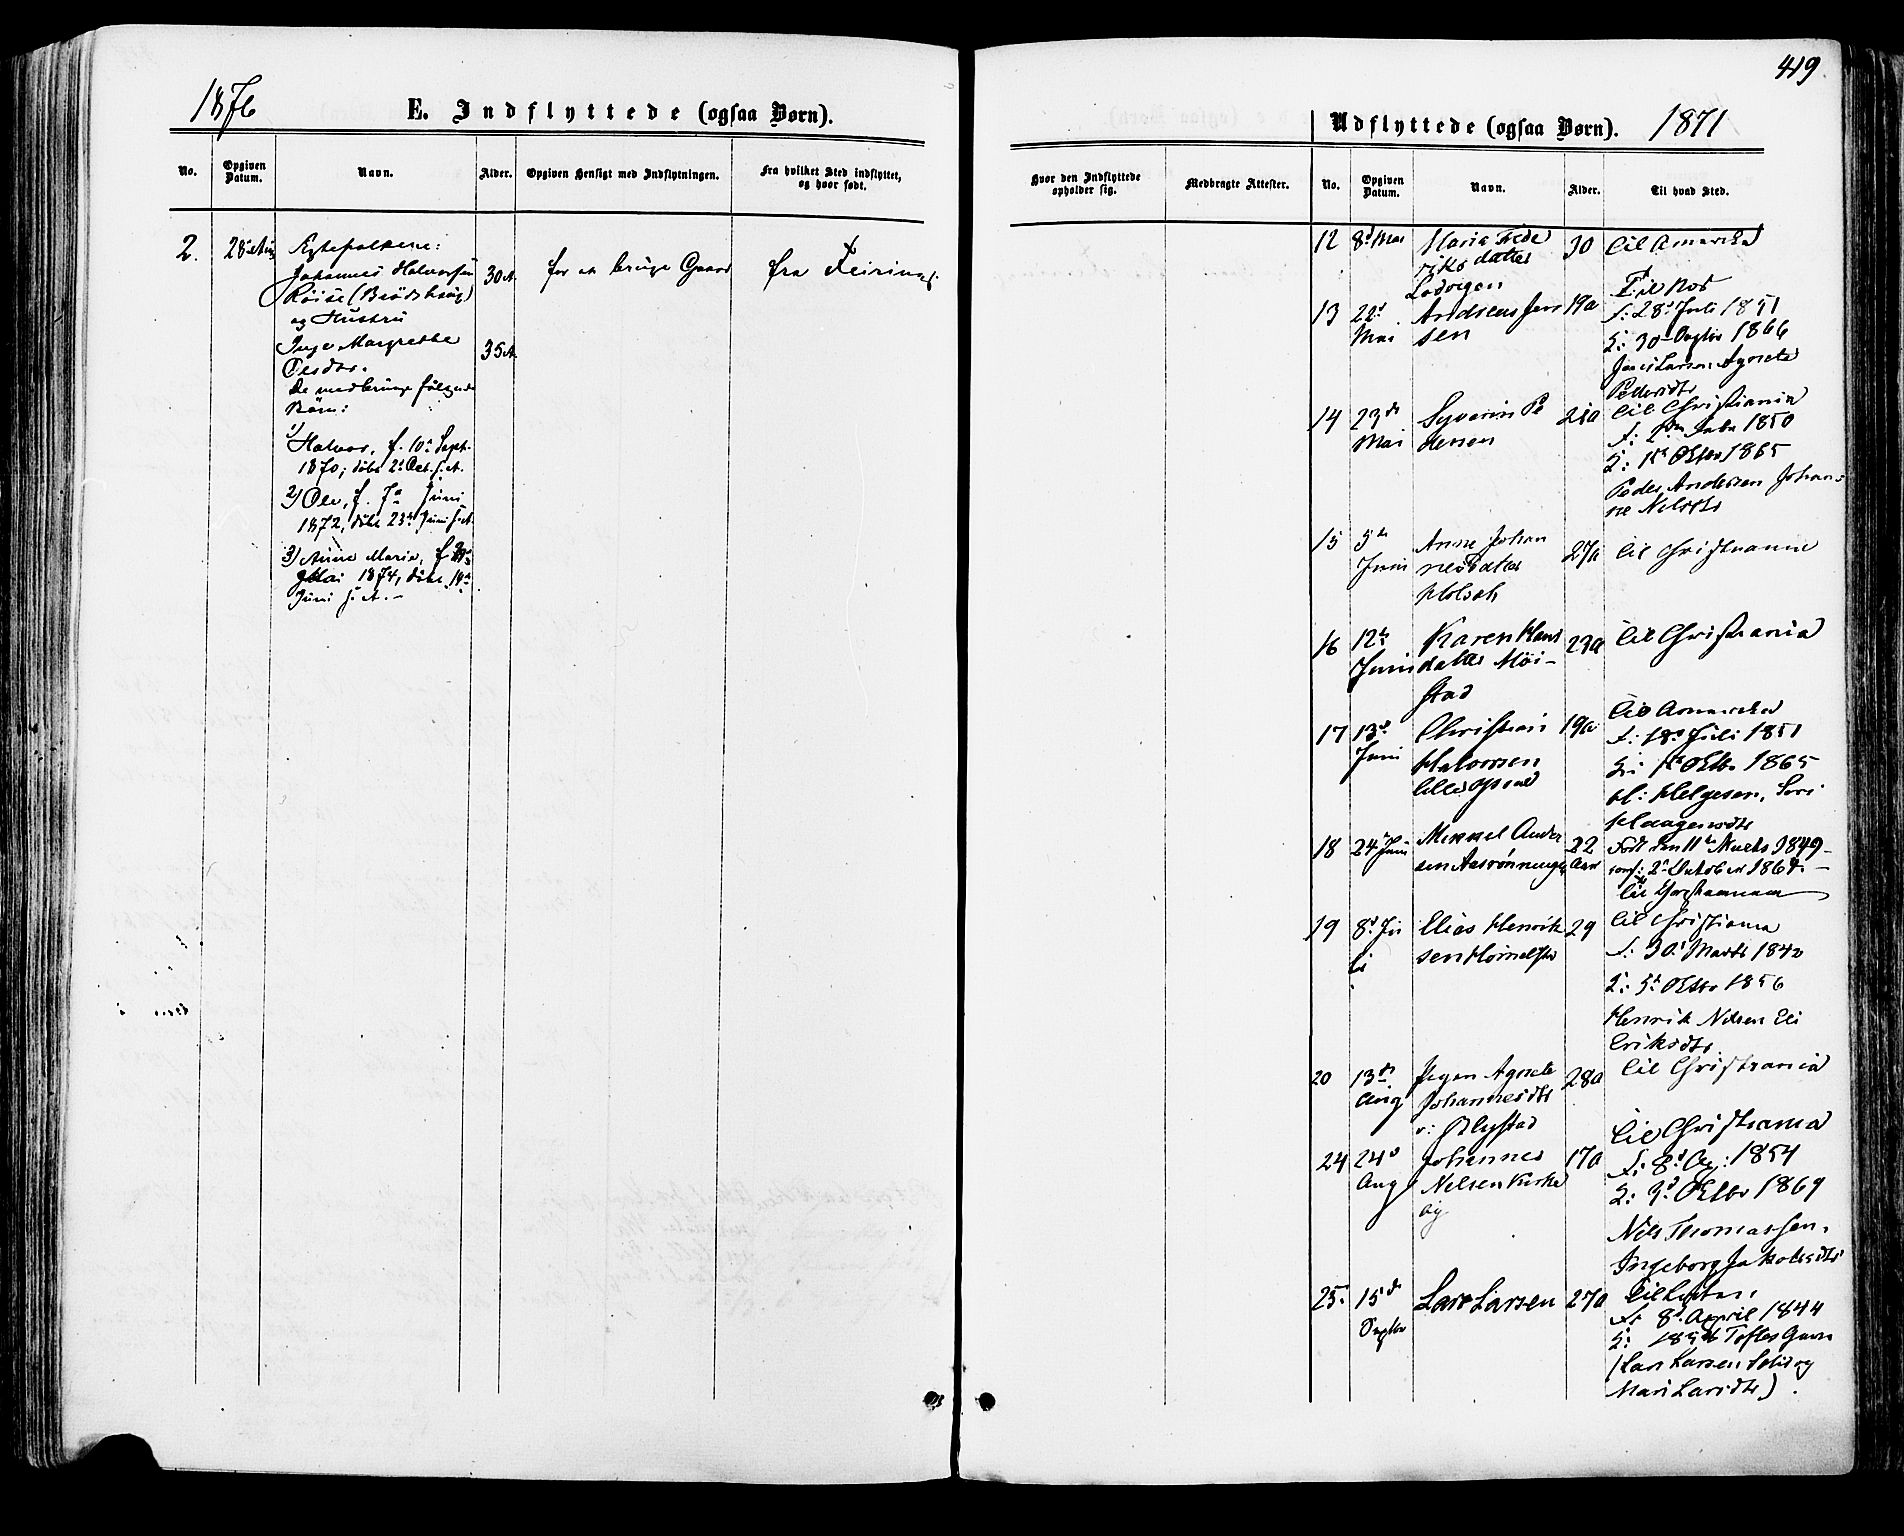 419.
1876
E. Indflyttede (ogsaa Børn).
No.
Opgiven Datum.
Navn.
Alder.
Opgiven Hensigt med Indflytningen.
Fra hvilket Sted indflyttet, og hvor født.
2.
28 Aug
Ægtefolkene:
Johannes Halvorsen
og Hustru
Margrethe
De medbringe følgende
Børn:
1)
Halvor, f. 10de Sept.
1870; døbt 2d Oct. s. A.
2) Ole, f. 7de Juni
1872, døbt 23de Juni s. A.
3) Anne Marie, f.
Mai 1874, døbt
Juni s. A. –
30 A.
35 A.
for at bruge Gaard
fra Feiring.
Udflyttede (ogsaa Børn). 1871
Hvor den Indflyttede opholder sig.
Medbragte Attester.
No.
Opgiven Datum.
Navn.
Alder.
Til hvad Sted.
12 8d Mai Maria Frede
riksdatter
30 til Amerika
13 22d
Mai
Andreas Jen
sen
19a
f: 28d Juli 1851
30 Septbr 1866
Jens Larsen Agnete
Pedersdtr
14 23de
Mai
Syverin Pe
dersen
21a til Christiania
1850
Oktbr 1865
Peder Andersen Johan
ne Nilsdtr
15 5te
Juni
Anne Johan
nesdatter
27a til Christiania
16 12te
Juni
Karen Hans
datter Møi-
stad
23a til Christiania
17 13de
Juni
Christian
Halvorsen
19a til Amerika
f: 18de Juli 1851
Oktbr 1865
H: Helgesen, Siri
Haagensdtr
18 24de Juni
Mikkel Ander
sen
22
Aar
Født den 11te Marts 1849 –
conf: 2d Oktober 1864. –
til Christiania
19 8d Ju
li
Elias Henrik
sen
29 til Christiania
f: 30d Marts 1842
Oktbr 1856
Henrik Nilsen Eli
Eriksdtr.
20 13de
Aug
Agnete
Johannesdtr
28a til Christiania
24 24d
Aug
Johannes
Nilsen Kirke
by
17a
til Christiania
f: 8d Ag: 1854
Oktbr 1869
Nils Thomassen.
Ingeborg Jakobsdtr
25. 15de
Septbr
Lars Larsen 27a
f: 8d April 1844
(Lars Larsen
Mari Larsdtr).